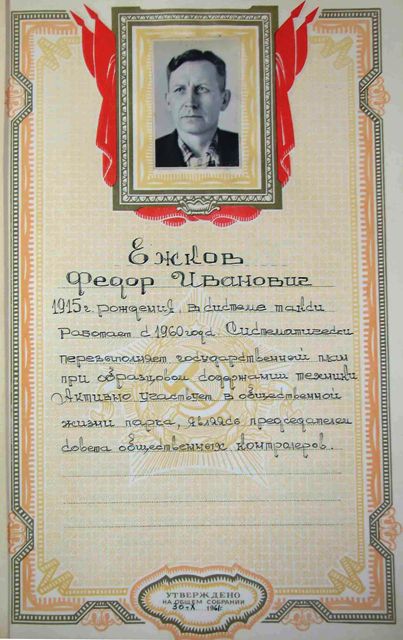 Ежков
Федор Иванович
1915 г. рождения, в системе такси
работает с 1960 года. Систематически
перевыполняет государственный план
при образцовом содержании техники
Активно участвует в общественной
жизни парка, являясь председателем
совета общественных контролеров.
УТВЕРЖДЕНО
НА ОБЩЕМ СОБРАНИИ
30-X 1961г.